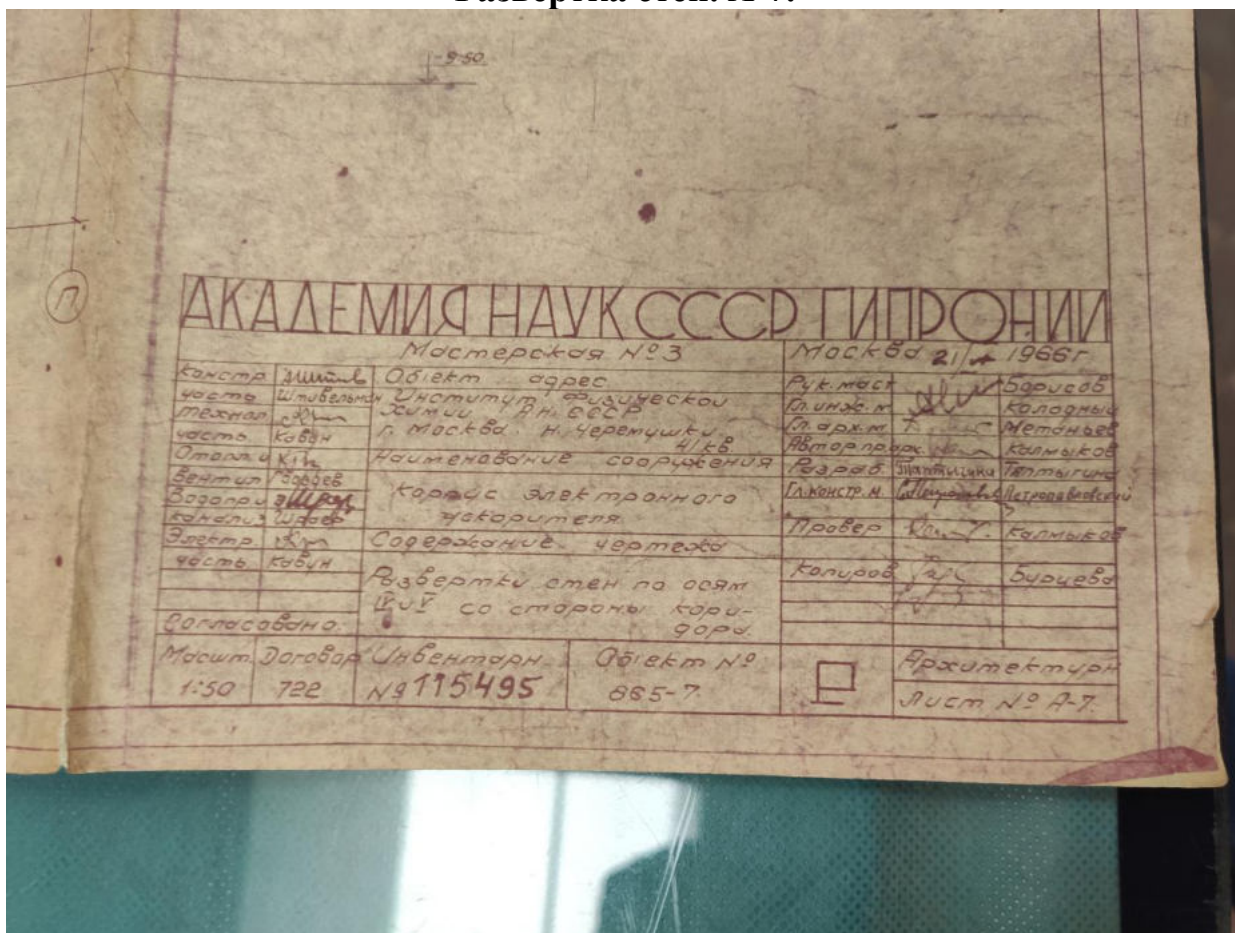 Развертка стен А-7.
-9.50
П
АКАДЕМИЯ НАУК СССР ГИПРОНИИ
Мастерская №3 Москва 21 1966г.
Констр. часть Штивельман
Технол. часть Кабан
Отопл и Вентил Гордеев
Водопр и канализ
Электр. часть Кабун
Согласовано.
Объект адрес
Институт Физической
Химии А.Н. СССР
г. Москва. Н. Черемушки.
41 кв.
Наименование сооружения
Корпус электронного
ускорителя.
Содержание чертежа
Развертки стен по осям
IV и V со стороны кори-
дора.
Рук. маст Борисов
Гл. инж. м Колодный
Гл. арх. м
Автор пр. арх. Калмыков
Разраб. Тяптыгина
Гл. констр. м. Петропавловский
Провер Калмыков
Копиров Бурцева
Масшт. Договор Инвентарн. Объект №
1:50 722 №115495 665-7.
Р
Архитектурн
Лист № А-7.